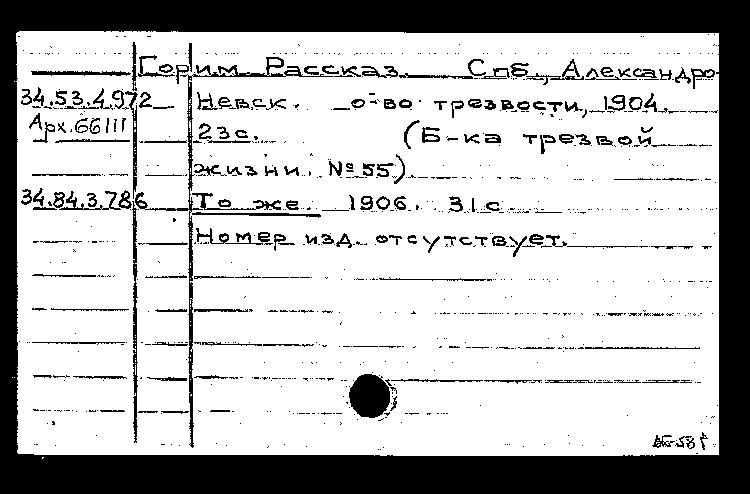 Горим. Рассказ. Спб., Александро-
34.53.4.972 Невск. о-во трезвости, 1904.
Арх.66111 23с. (Б-ка трезвой
жизни. №55)
34.84.3.786 То же. 1906. 31с.
Номер изд. отсутствует.